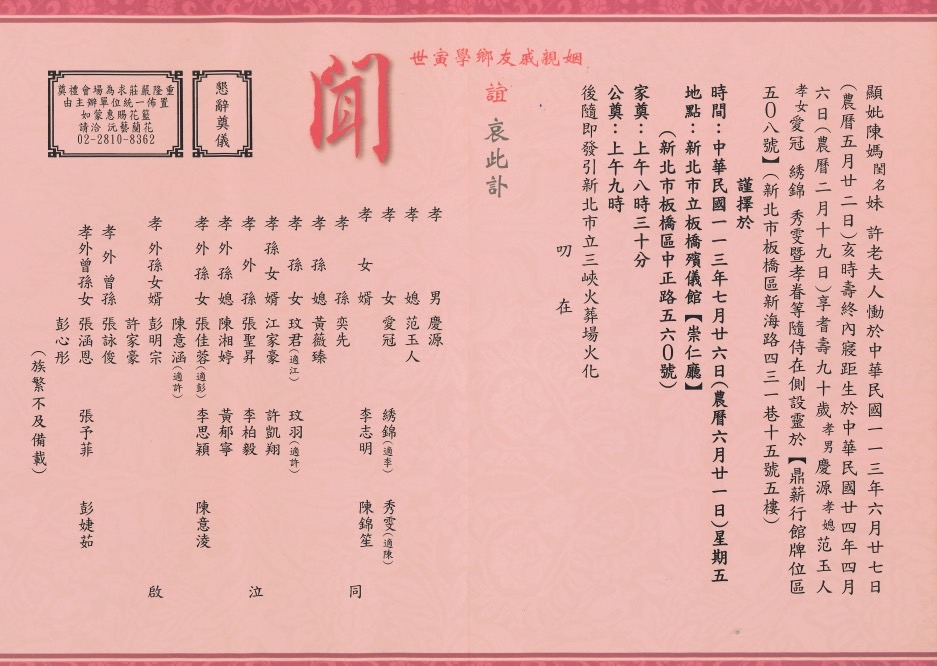 顯妣陳媽閨名妹 許老夫人慟於中華民國一一三年六月廿七日
(農曆五月廿二日)亥時壽終內寢距生於中華民國廿四年四月
六日(農曆二月十九日)享耆壽九十歲孝男慶源孝媳范玉人
孝女愛冠 綉錦 秀雯暨孝眷等隨侍在側設靈於【鼎薪行館牌位區
五0八號】(新北市板橋區新海路四三一巷十五號五樓)
謹擇於
時間：中華民國一一三年七月廿六日(農曆六月廿一日)星期五
地點：新北市立板橋殯儀館【崇仁廳】
(新北市板橋區中正路五六0號)
家奠：上午八時三十分
公奠：上午九時
後隨即發引新北市立三峽火葬場火化
叨 在
姻親戚友鄉學寅世
誼 哀此訃
聞
孝男 慶源
孝媳 范玉人
孝女 愛冠 綉錦(適李) 秀雯(適陳)
孝女婿 李志明 陳錦笙
孝孫 奕先
孝孫媳 黃薇臻
孝孫女 玟君(適江) 玟羽(適許)
孝孫女婿 江家豪 許凱翔
孝外孫 張聖昇 李柏毅
孝外孫媳 陳湘婷 黃郁寧
孝外孫女 張佳蓉(適彭) 李思穎 陳意淩
陳意涵(適許)
孝外孫女婿 彭明宗
許家豪
孝外曾孫 張詠俊
孝外曾孫女 張涵恩 張予菲 彭婕茹
彭心彤
(族繁不及備載)
同 泣 啟
懇辭奠儀
奠禮會場為求莊嚴隆重
由主辦單位統一佈置
如蒙惠賜花籃
請洽 沅藝蘭花
02-2810-8362